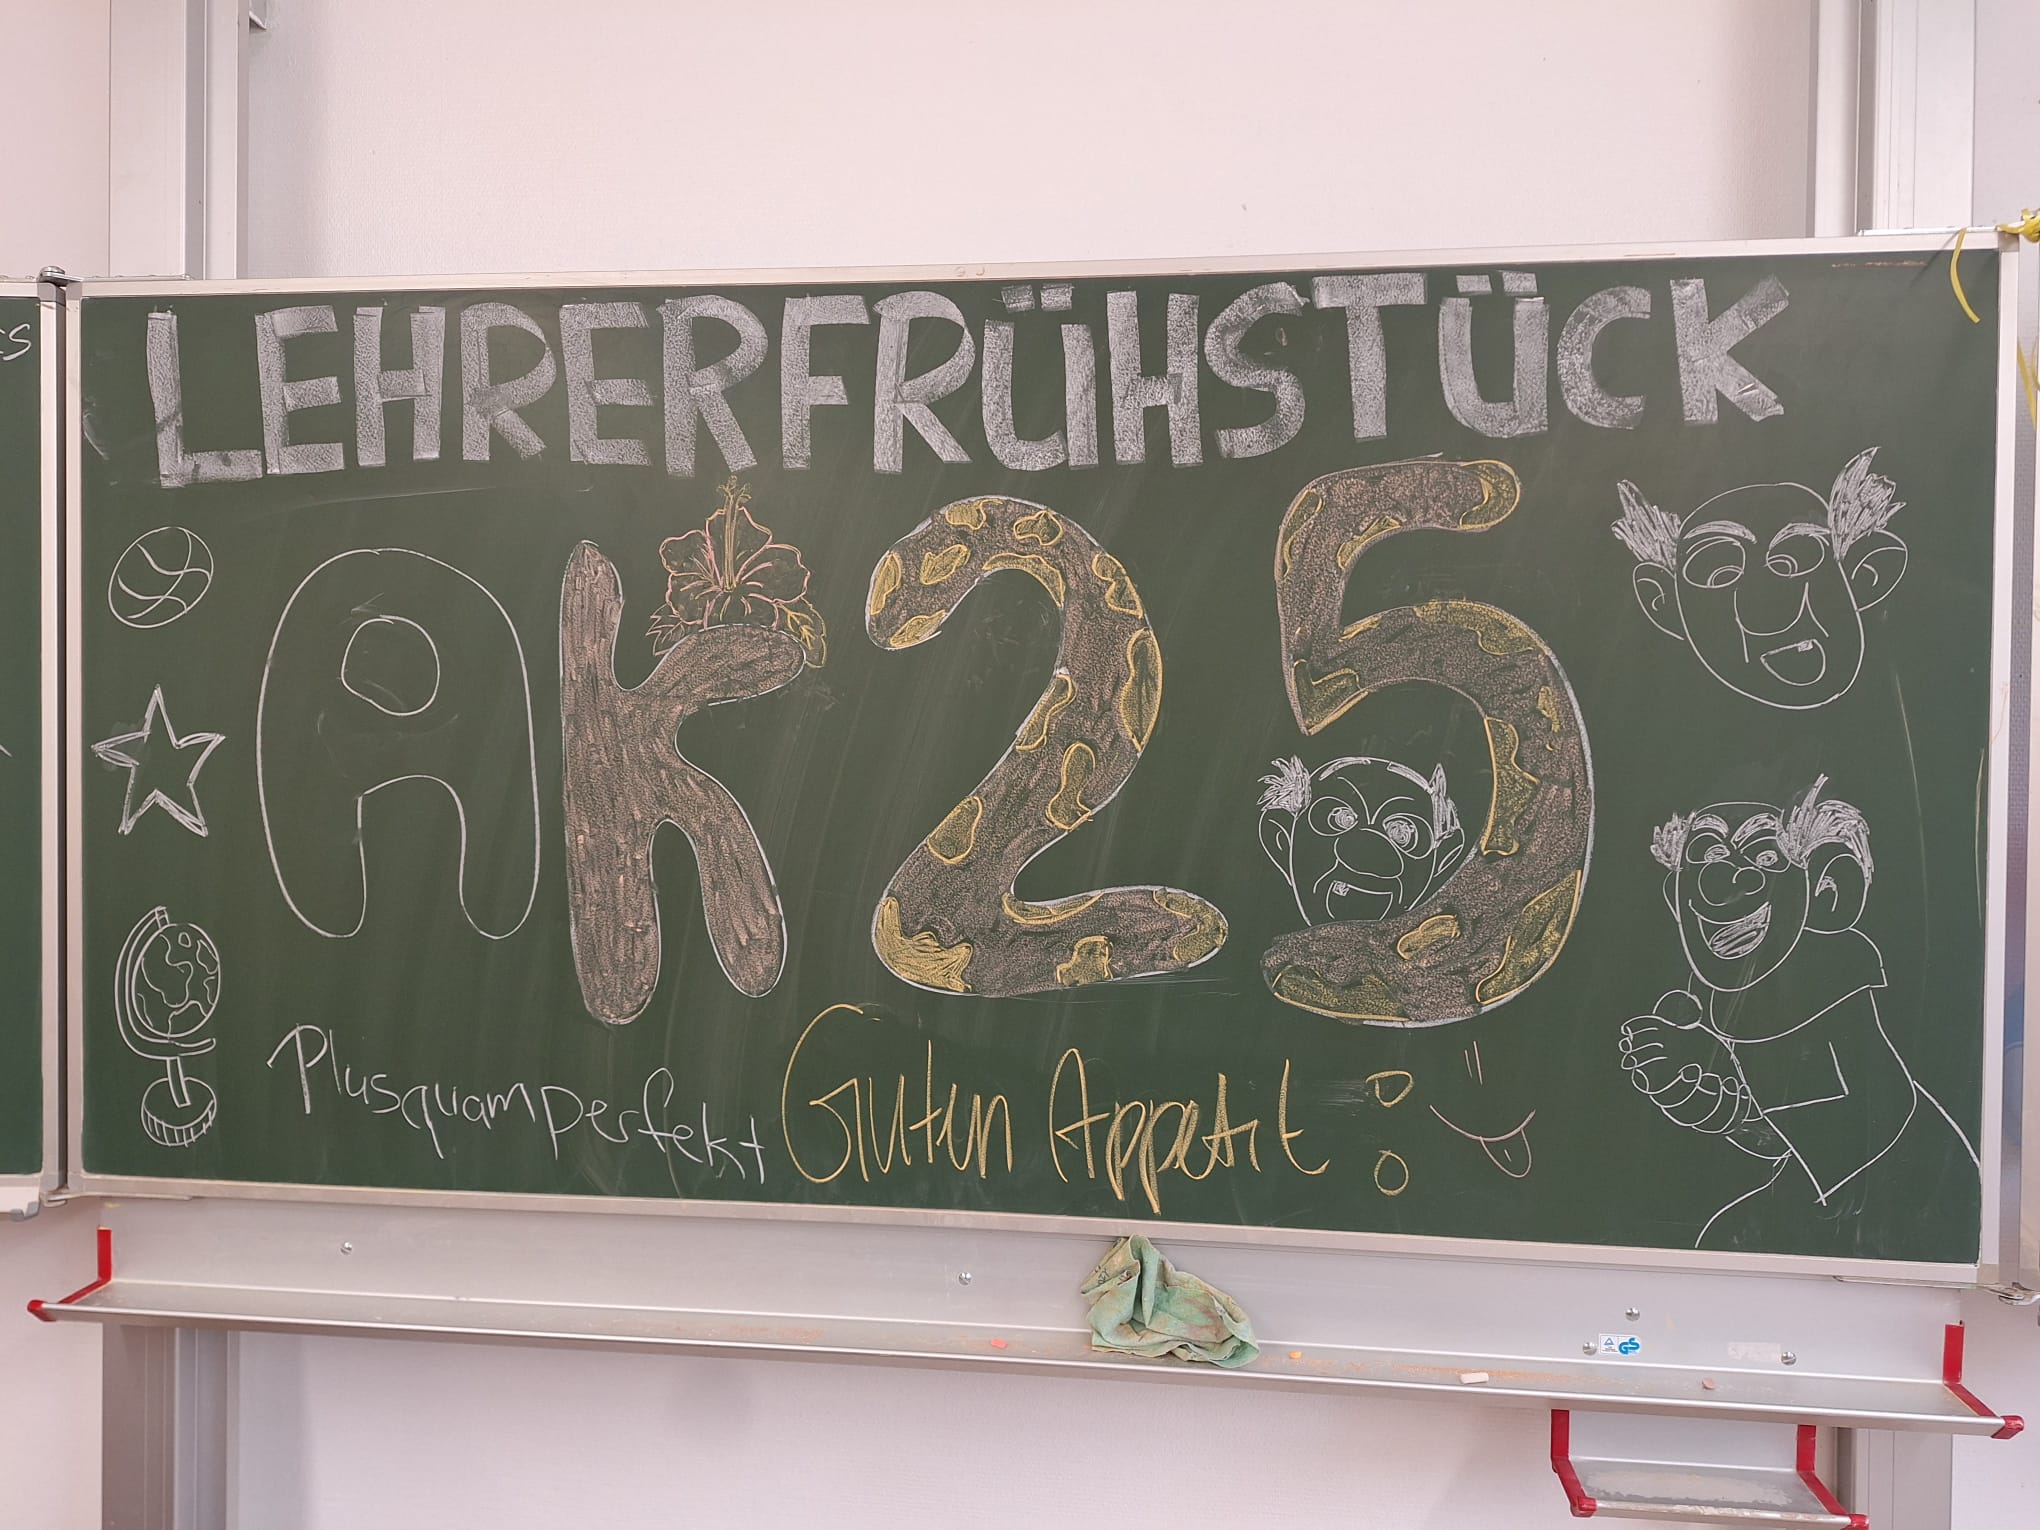 LEHRERFRÜHSTÜCK
AK25
Plusquamperfekt
Guten Appetit :